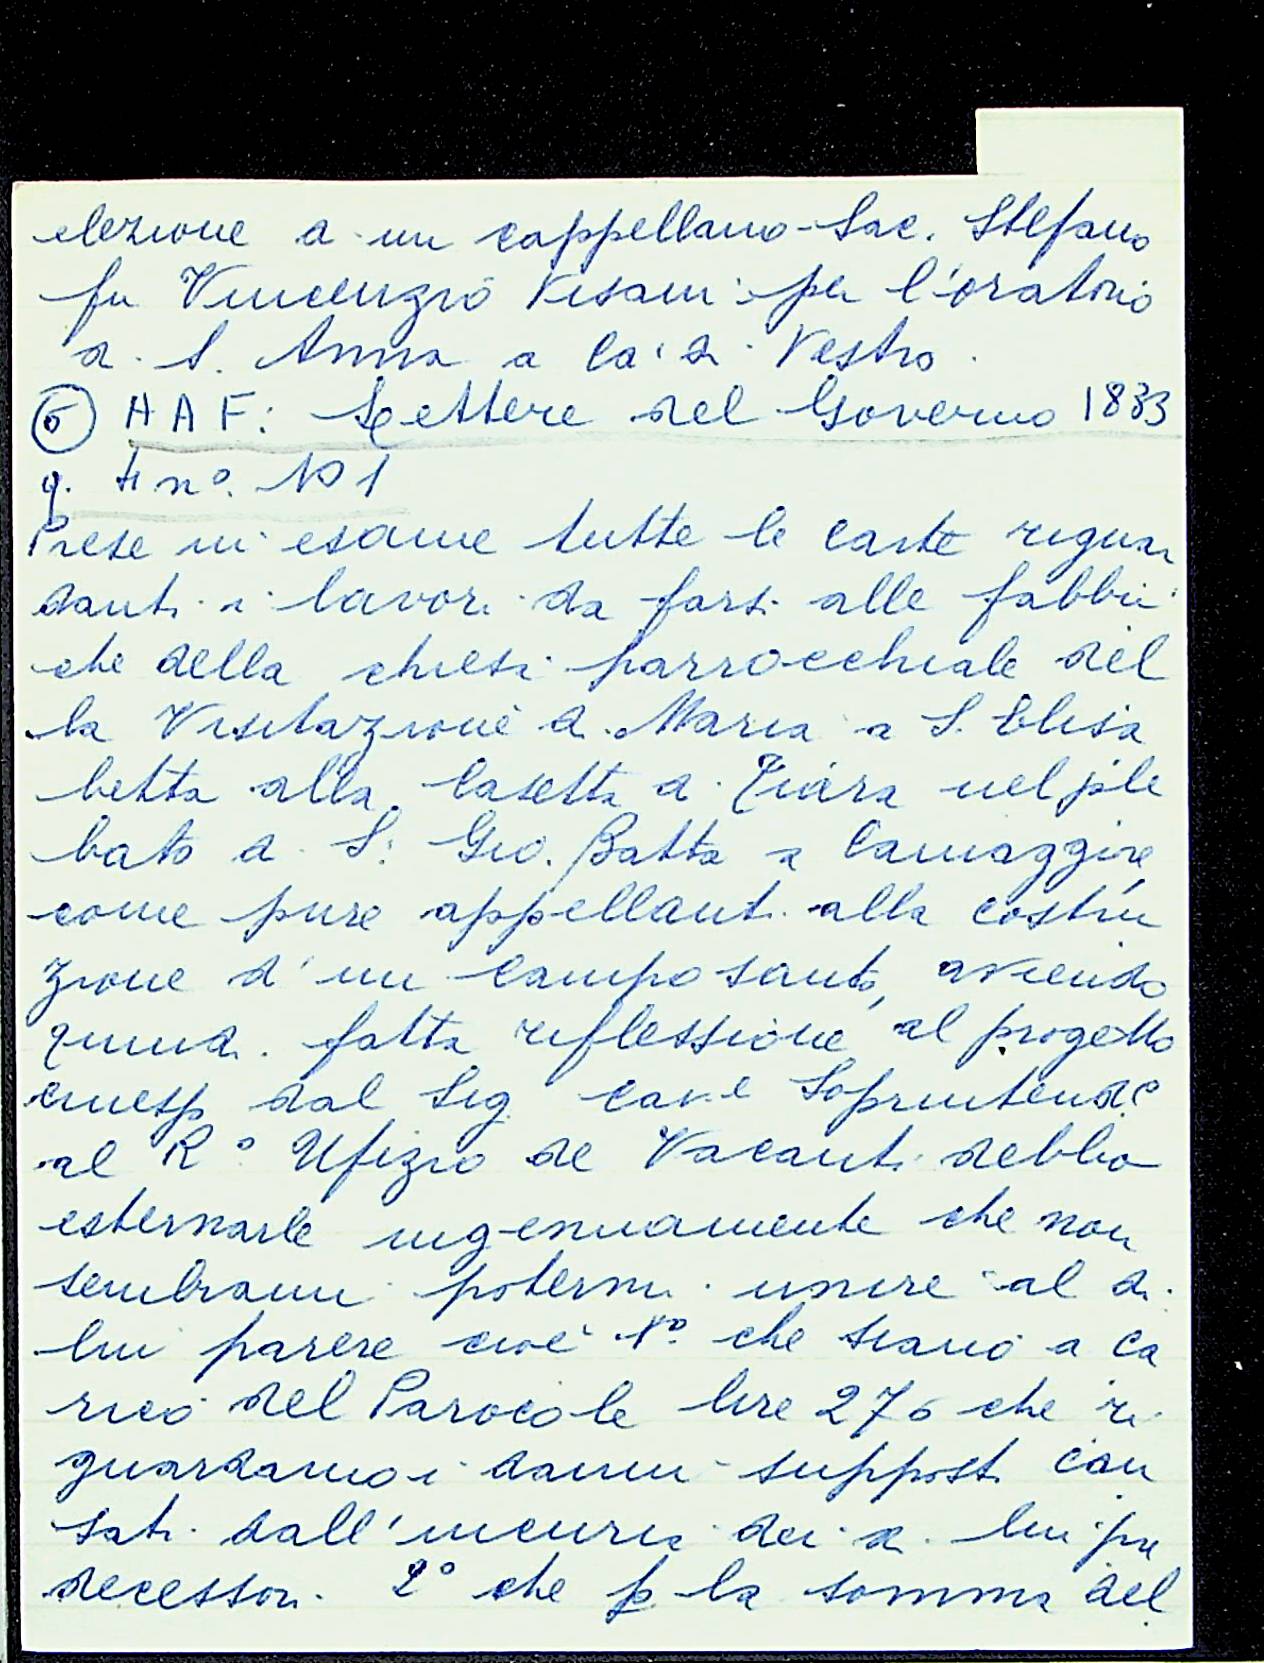 elezione di un cappellano Sac. Stefano
fu Vincenzio Visani per l'oratorio
di S. Anna a Ca' di Vestro.
⑥ A A F: Lettere del Governo 1833
n°. 101
Prese in esame tutte le carte riguar
danti i lavori da farsi alle fabbri
che della chiesa parrocchiale del
la Visitazione di Maria a S. Elisa
betta alla Casetta di Tiara nel ple
bato di S. Gio. Batta a Camaggire,
come pure appellanti alla costru
zione d'un campo santo, avendo
quindi fatta riflessione al progetto
emesso dal Sig. Cav.e Soprintend.e
al R° Ufizio de Vacanti debbo
esternarle ingenuamente che non
sembrami potermi unire al di
lui parere cioè 1°. che siano a ca
rico del Paroco le lire 276 che ri
guardano i danni supposti cau
sati dall'incuria dei di lui pre
decessori. 2° che p la somma del